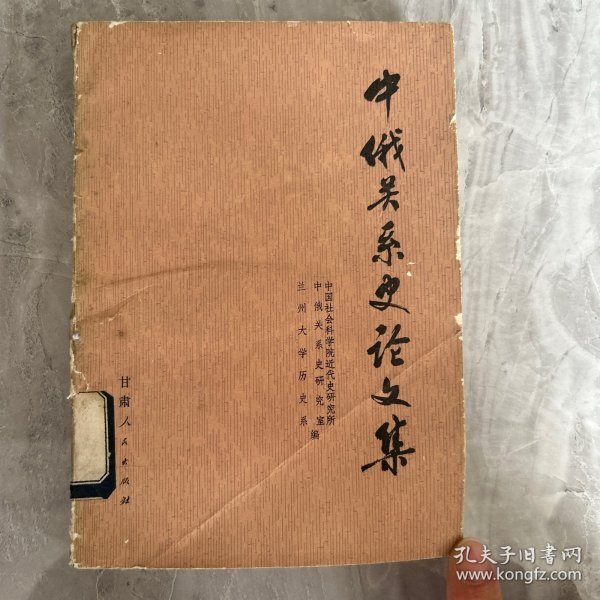 中俄关系史论文集
中国社会科学院近代史研究所
中俄关系史研究室
兰州大学历史系
编
甘肃人民出版社
孔夫子旧书网
www.kongfz.com